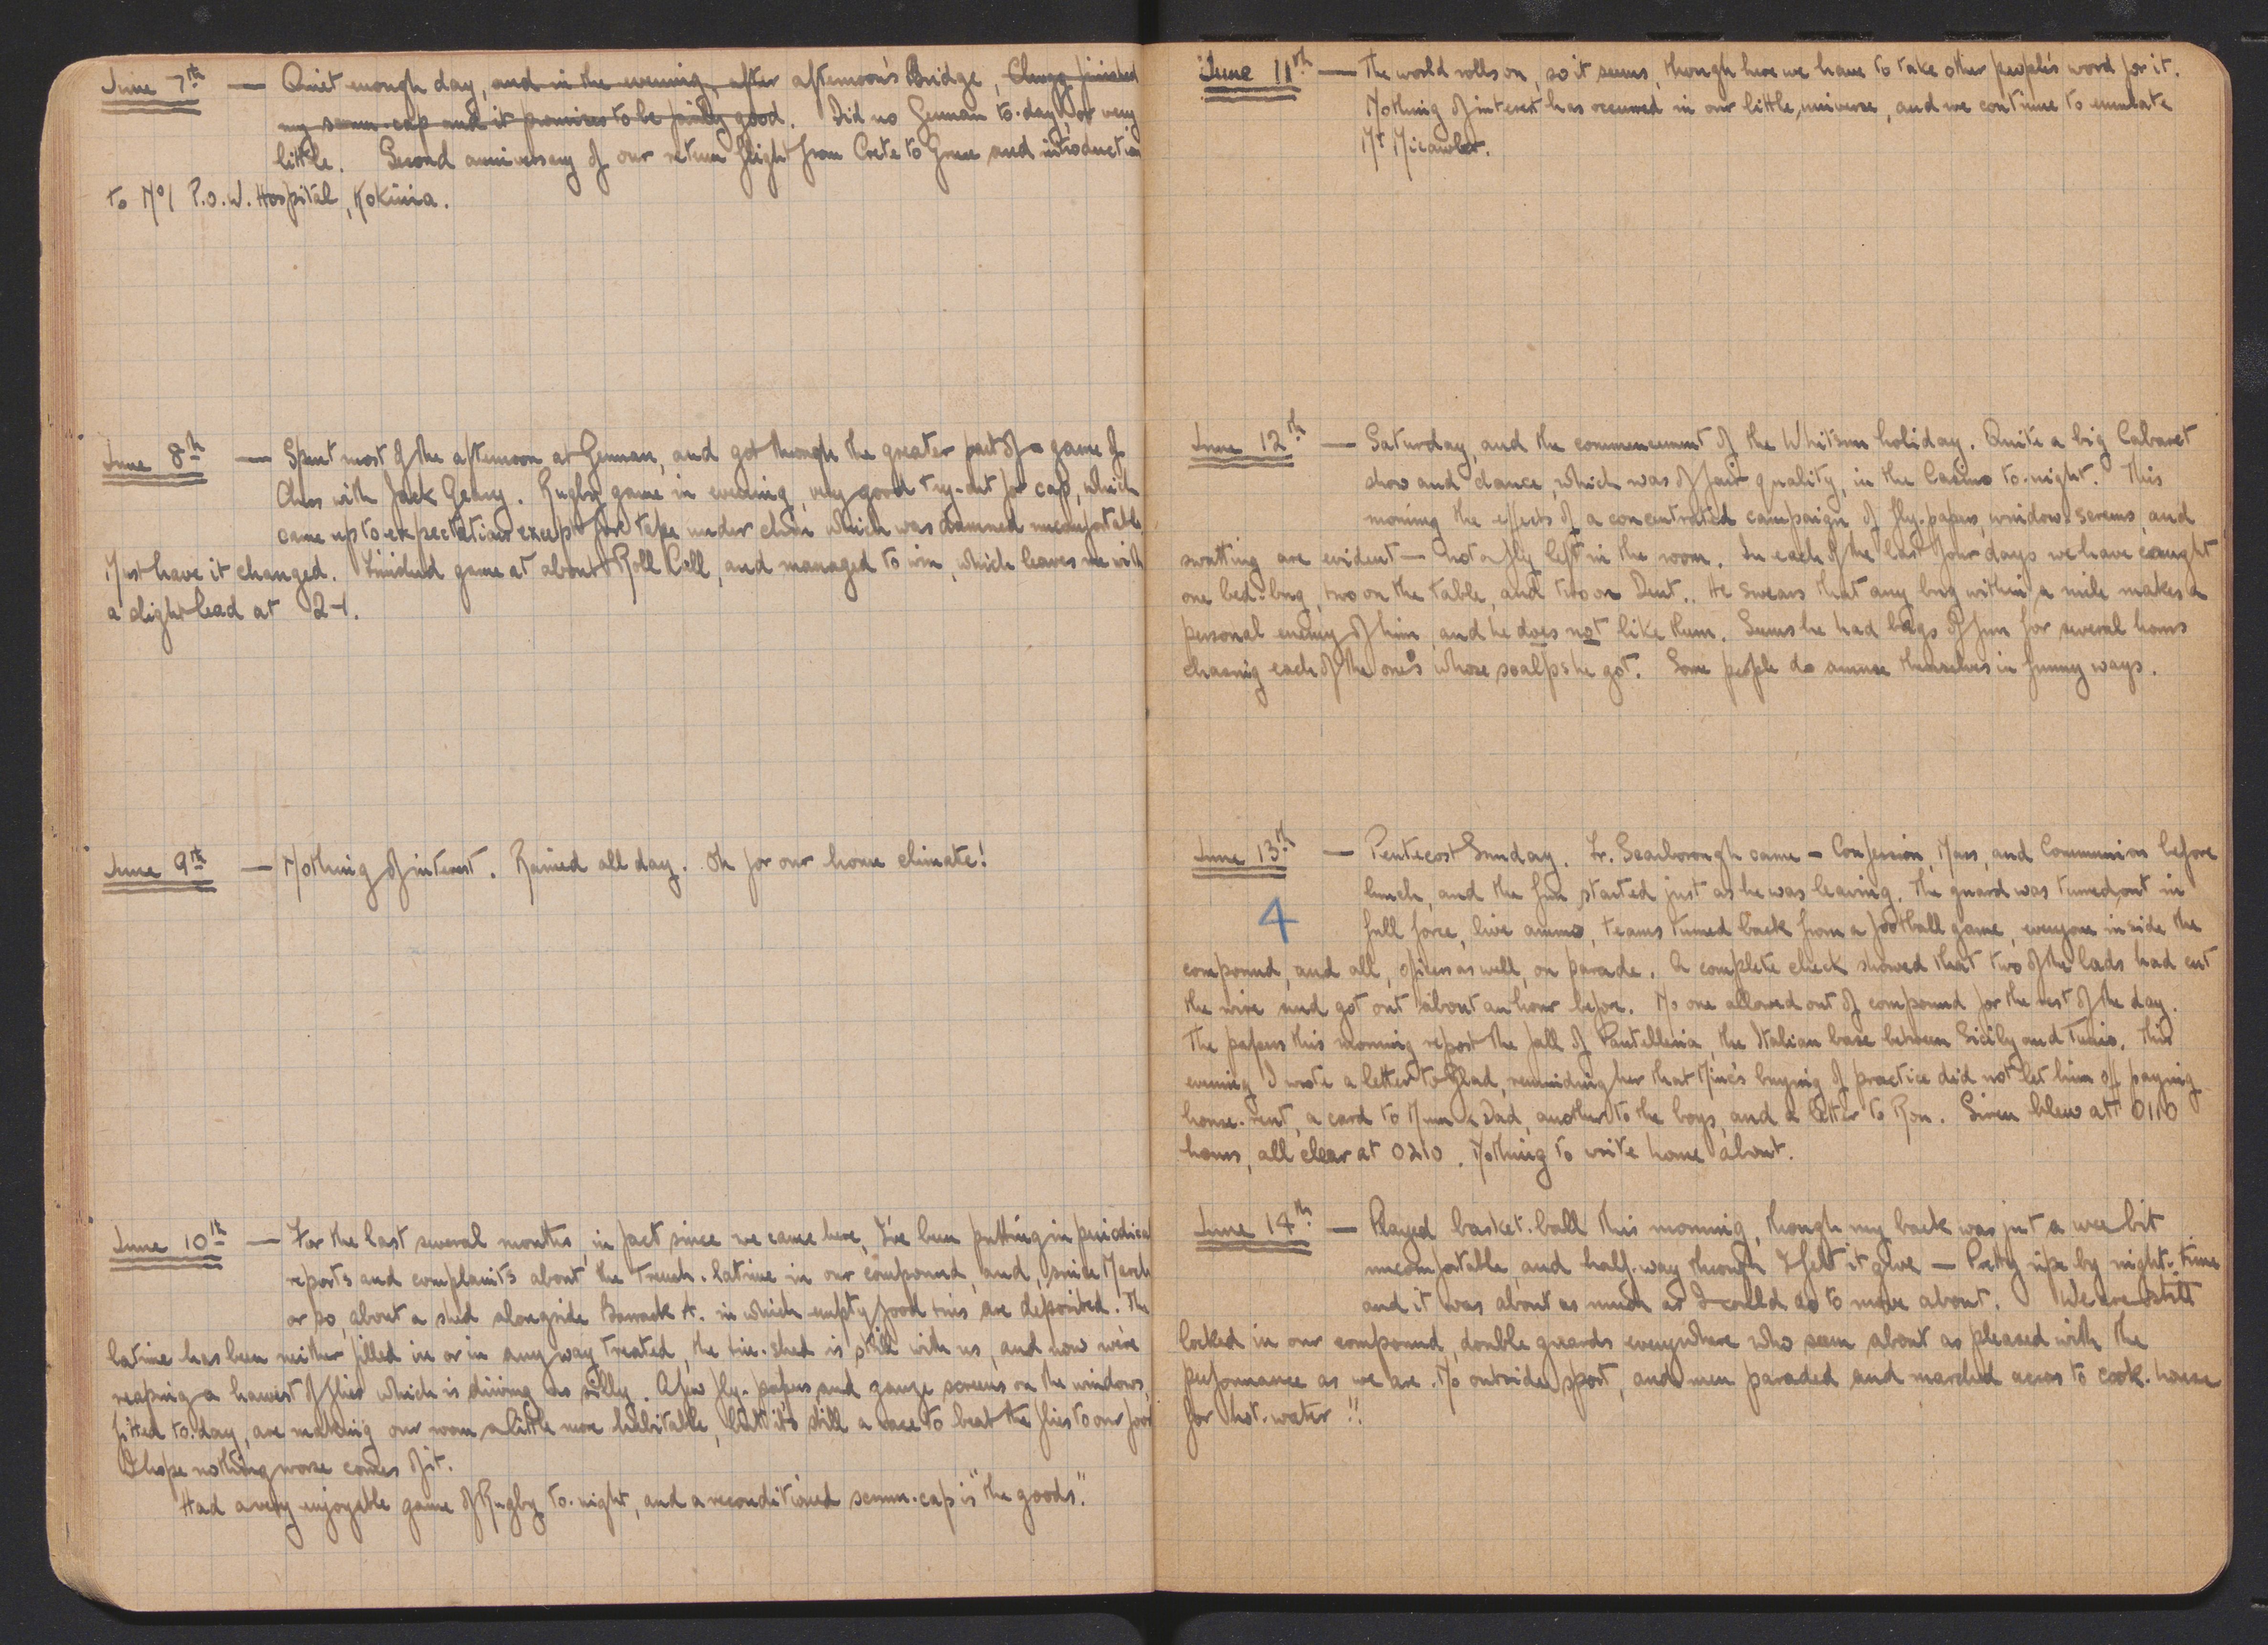 June 7th — Quiet enough day, and in the evening, after afternoon's Bridge, finished
my scrum-cap and it promises to be fairly good. Did no German to-day, or very
little. Second anniversary of our return flight from Crete to Greece and introduction
to No1 P.O.W. Hospital, Kokinia.
June 8th — Spent most of the afternoon at German, and got through the greater part of a game of
Chess with Jack Geary. Rugby game in evening, very good try-out for cap, which
came up to expectations except for tape under chin which was damned uncomfortable.
Must have it changed. Finished game at about Roll Call, and managed to win, which leaves me with
a slight lead at 2-1.
June 9th — Nothing of interest. Rained all day. Oh for our home climate!
June 10th — For the last several months, in fact since we came here, I've been putting in periodical
reports and complaints about the trench-latrine in our compound, and, since March
or so, about a shed alongside Barrack A. in which empty food tins are deposited. The
latrine has been neither filled in or in any way treated, the tin-shed is still with us, and now we're
reaping a harvest of flies which is driving us silly. A few fly-papers and gauze screens on the windows,
fitted to-day, are making our room a little more habitable, but it's still a race to beat the flies to our food
I hope nothing worse comes of it.
Had a very enjoyable game of Rugby to-night, and a reconditioned scrum-cap is "the goods."
June 11th — The world rolls on, so it seems, though here we have to take other people's word for it.
Nothing of interest has occurred in our little universe, and we continue to emulate
Mr Micawber.
June 12th — Saturday, and the commencement of the Whitsun holiday. Quite a big Cabaret
show and dance, which was of fair quality, in the Casino to-night. This
morning the effects of a concentrated campaign of fly-papers, window-screens, and
swatting are evident — not a fly left in the room. In each of the last four days we have caught
one bed-bug, two on the table, and two on Dent. He swears that any bug within a mile makes a
personal enemy of him, and he does not like them. Seems he had bags of fun for several hours
chasing each of the ones whose scalps he got. Some people do amuse themselves in funny ways.
June 13th — Pentecost Sunday. Fr. Scarborough came – Confession, Mass, and Communion before
lunch, and the fun started just as he was leaving. The guard was turned out in
4
full force, live ammo, teams turned back from a football game, everyone inside the
compound, and all, officers as well, on parade. A complete check showed that two of the lads had cut
the wire and got out about an hour before. No one allowed out of compound for the rest of the day.
The papers this morning report the fall of Pantelleria, the Italian base between Sicily and Tunis. This
evening I wrote a letter to Glad, reminding her that Minc's buying of practice did not let him off paying
house-rent, a card to Mum & Dad, another to the boys, and a letter to Ron. Siren blew at 0110
hours, all clear at 0210. Nothing to write home about.
June 14th — Played basket-ball this morning, though my back was just a wee bit
uncomfortable, and half-way through I felt it give — Pretty ripe by night-time
and it was about as much as I could do to move about. We are still
locked in our compound, double guards everywhere who seem about as pleased with the
performance as we are. No outside sport, and men paraded and marched across to cook-house
for hot-water !!